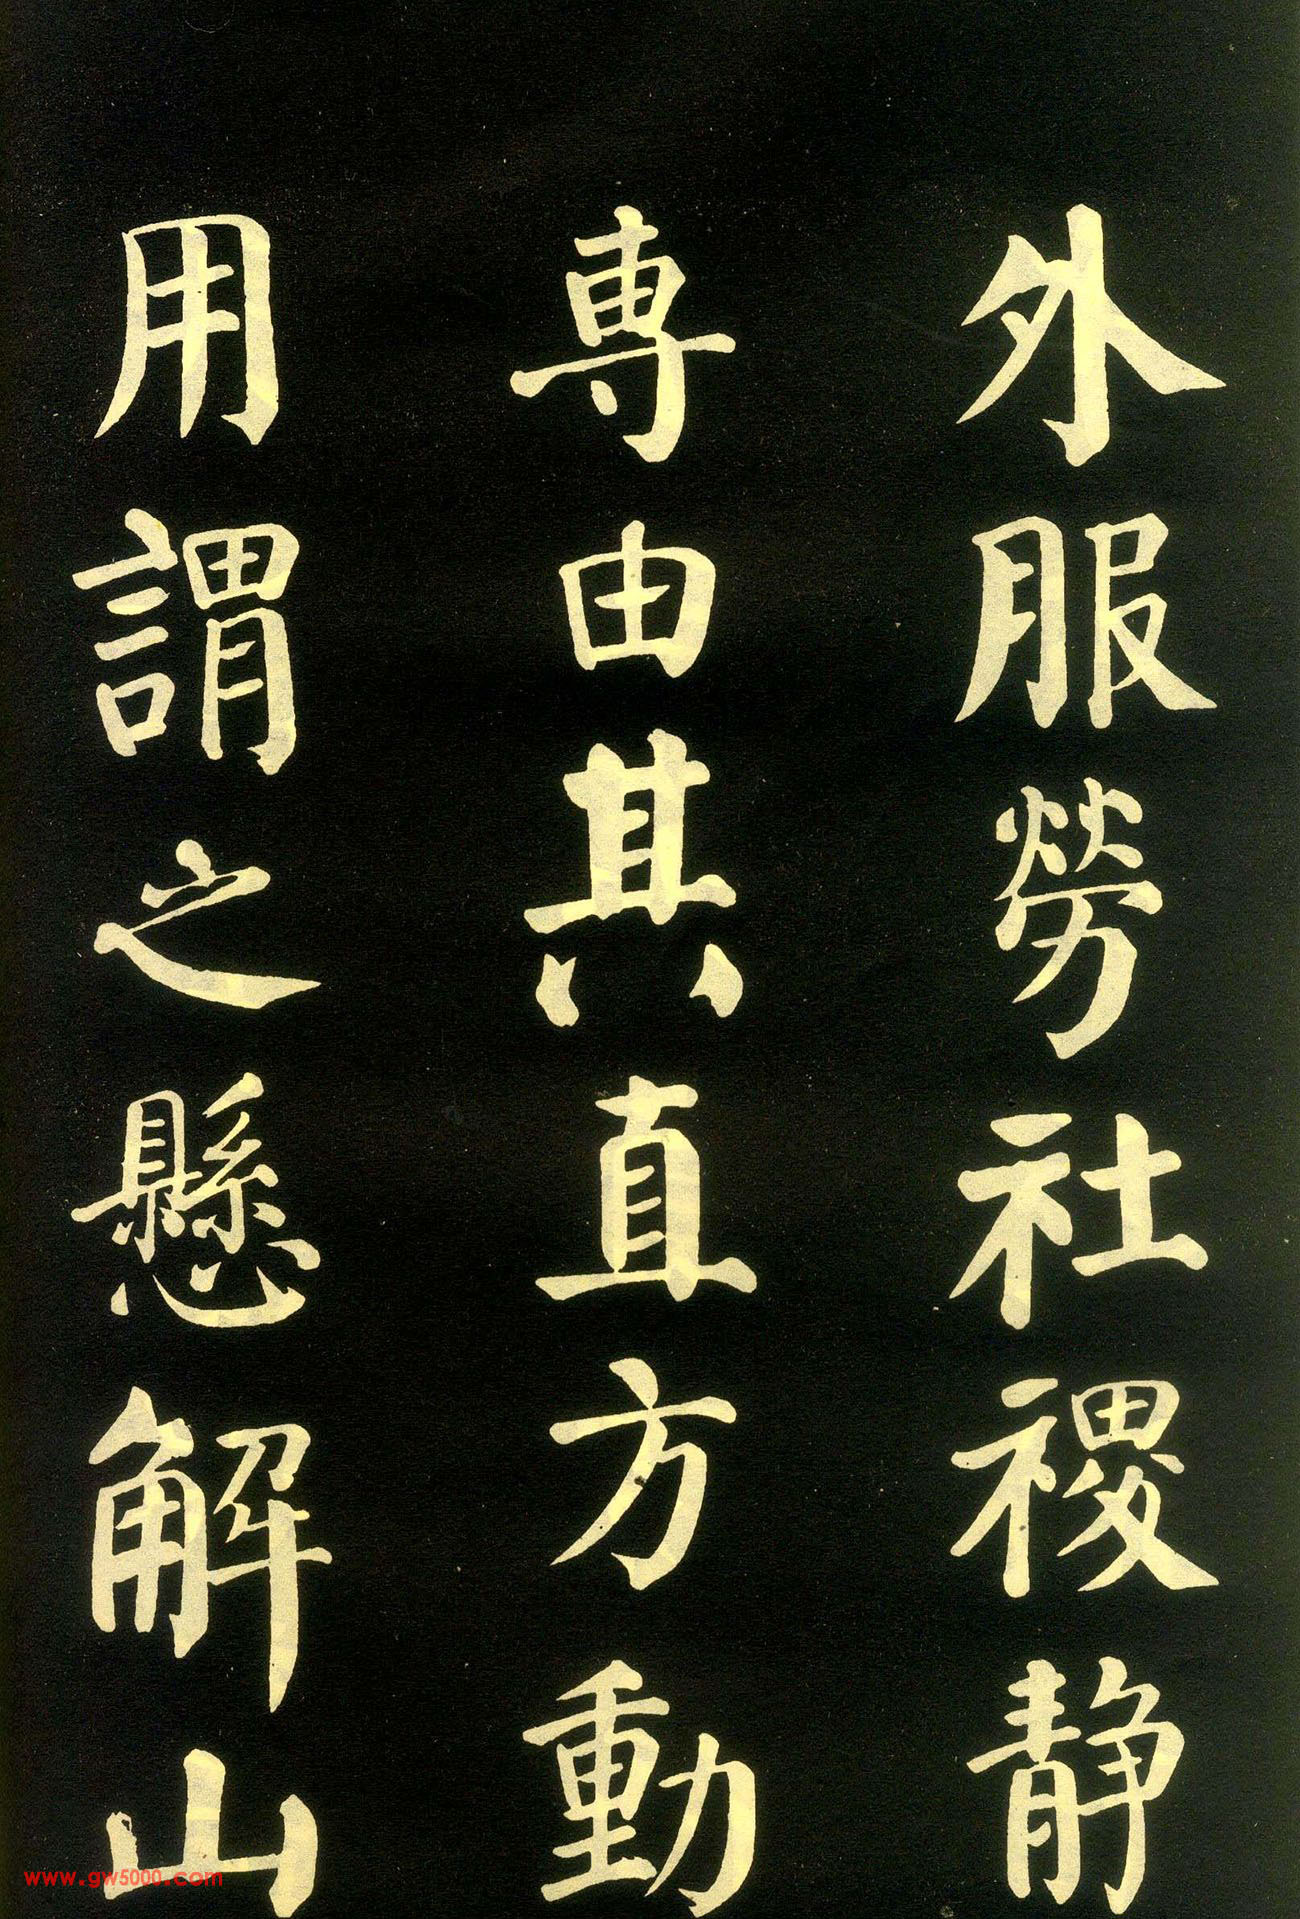 外服勞社稷静
専由其直方動
用謂之懸解山
www.gw5000.com